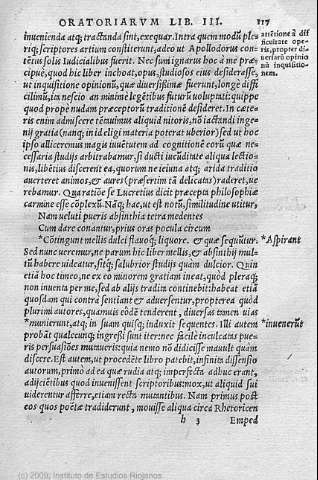 ORATORIARVM LIB. III. 117
inuenienda atq; tractanda sint, exequar. Intra quem modū pleri-
q; scriptores artium constiterunt, adeo ut Apollodorus con-
tētus solis Iudicialibus fuerit. Nec sum ignarus hoc à me præ-
cipuè, quod hic liber inchoat, opus, studiosos eius desiderasse,
ut inquisitione opinionū, quæ diuersissimæ fuerunt, longè diffi-
cilimū, ita nescio an minimè legētibus futurū uoluptati: quippe
quod propè nudam præceptorū traditionē desideret. In cæte-
ris enim admiscere tētauimus aliquid nitoris, nō iactādi inge-
nij gratia (nanq; in id eligi materia poterat uberior) sed ut hoc
ipso alliceremus magis iuuētutem ad cognitionē eorū quæ ne-
cessaria studijs arbitrabamur, si ducti iucūditate aliqua lectio-
nis, libētius discerent ea, quorum ne ieiuna atq; arida traditio
auerteret animos, & aures (præsertim tā delicatas) raderet, ue-
rebamur. Qua ratiōe se Lucretius dicit præcepta philosophiæ
carmine esse cōplexū. Nāq; hac, ut est notū, similitudine utitur,
Nam ueluti pueris absinthia tetra medentes
Cum dare conantur, prius oras pocula circum
*Cōtingunt mellis dulci flauoq; liquore. & quæ sequūtur.
Sed nunc ueremur, ne parum hic liber mellis, & absinthij mul-
tū habere uideatur, sitq; salubrior studijs quàm dulcior. Quin
etiā hoc timeo, ne ex eo minorem gratiam ineat, quòd pleraq;
non inuenta per me, sed ab alijs tradita continebit: habeat etiā
quosdam qui contra sentiant & aduersentur, propterea quòd
plurimi autores, quamuis eòdē tenderent, diuersas tamen uias
*munierunt, atq; in suam quisq; induxit sequentes. Illi autem
probāt qualecunq; ingressi sunt iter: nec facilè inculcatas pue-
ris persuasiões mutaueris: quia nemo nō didicisse mauult quàm
discere. Est autem, ut procedēte libro patebit, infinita dissensio
autorum, primò ad ea quæ rudia atq; imperfecta adhuc erant,
adijciētibus quod inuenissent scriptoribus: mox, ut aliquid sui
uiderentur afferre, etiam recta mutantibus. Nam primus post
eos quos poëtæ tradiderunt, mouisse aliqua circa Rhetoricen
h 3 Emped
attētione à dif
ficultate ope-
ris, propter di
uersarū opinio
nū inquisitio-
nem.
*Aspirant
*inuenerūt
(c) 2009, Instituto de Estudios Riojanos